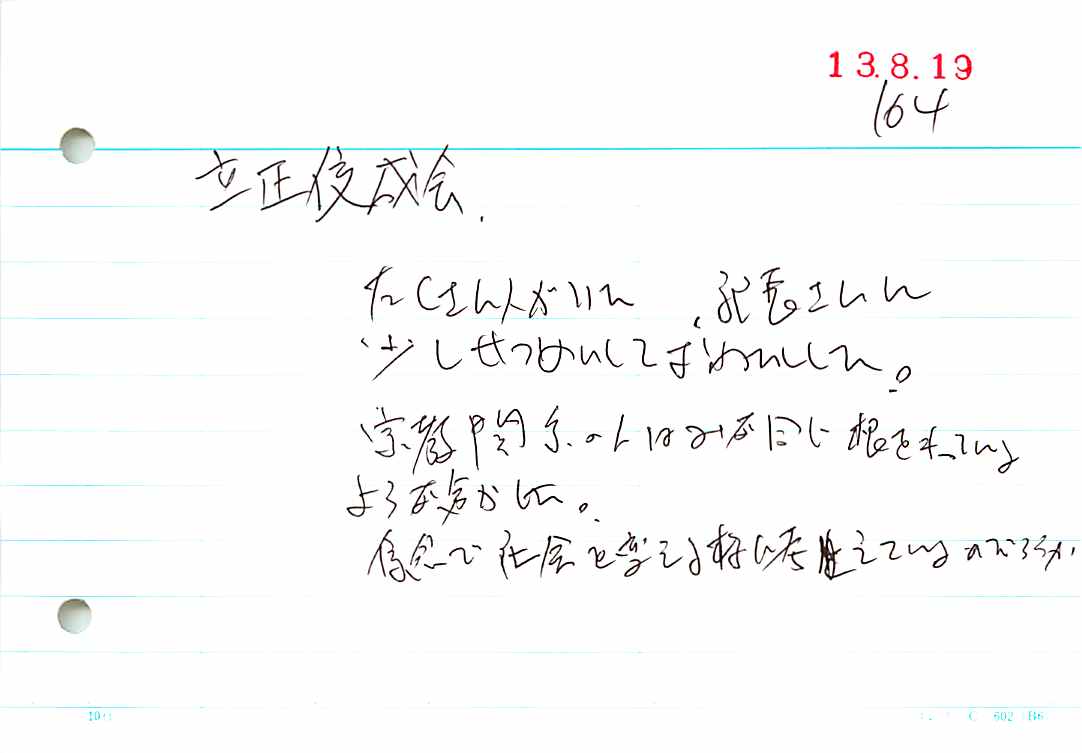 13.8.19
164
立正佼成会.
たくさん人がいた、発表された
少しせつめいしてまわりました。
宗教関系の人はみな目に根をもっている
ような気がした。
信念で社会を変える様に考えているのだろうか
10
C 602 B6